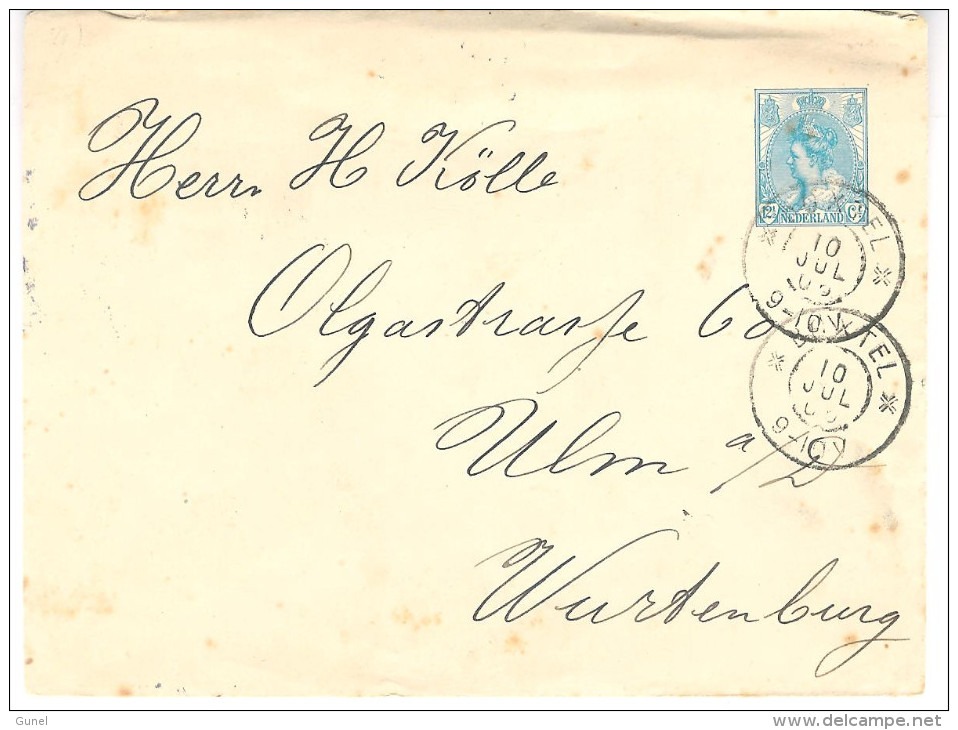 Herrn H Kölle
Olgastrasse 60
Ulm a/D
Wurtenburg
12½ NEDERLAND Ct
BOXTEL
10
JUL
9-10V
BOXTEL
10
JUL
9-10V
Gunel
delcampe.net